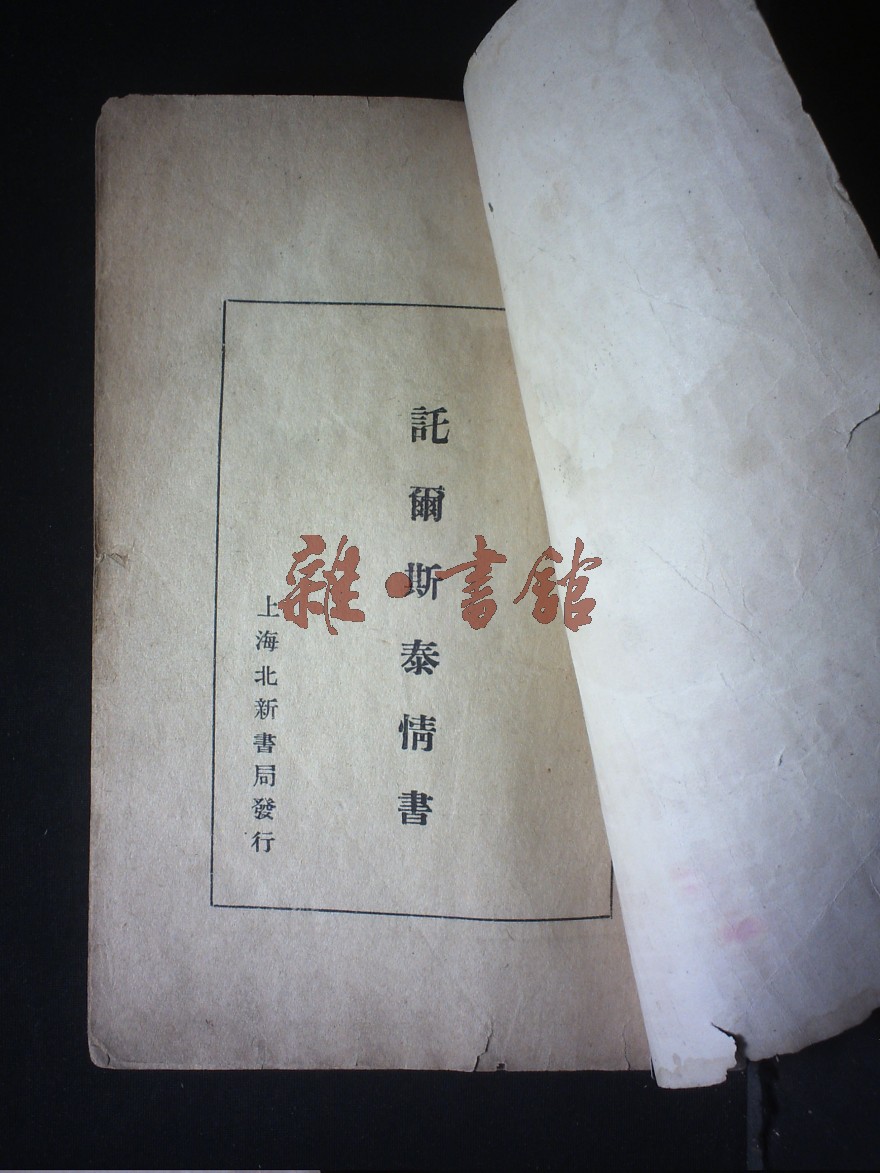 託爾斯泰情書
上海北新書局發行
雜·書館